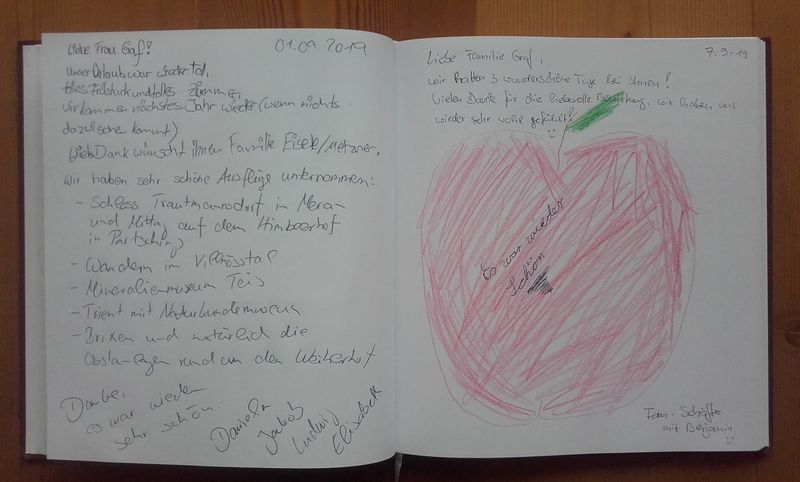 Liebe Frau Graf!
01.09.2019
unser Urlaub war wieder toll,
tolles Frühstück und tolles Zimmer,
wir kommen nächstes Jahr wieder (wenn nichts
dazwische kommt)
Vielen Dank wünscht ihnen Familie Eisele/
wir haben sehr schöne Ausflüge unternommen:
- Schloss Trautmannsdorf in Meran
und Mittag auf dem Himbeerhof
in
- Wandern im Villnösstal
- Mineralienmuseum Teis
- Trient mit Naturkundemuseum
- Brixen und natürlich die
Obstanlagen rund um den Weiherhof
Danke,
es war wieder
sehr schön.
Daniela
Jakob
Ludwig
Elisabeth
7.9.19
Liebe Familie Graf,
wir hatten 3 wunderschöne Tage bei Ihnen!
Vielen Dank für die liebevolle Bewirtung, wir haben uns
wieder sehr wohl gefühlt!
Es war wieder
schön
Fam. Schäffer
mit Benjamin